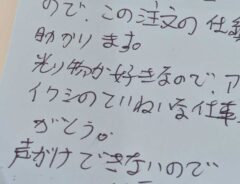 ので、この注文の仕
助かります。
光り物が好きなので、ア
イワシのていねいな仕事
がとう。
声がけできないので